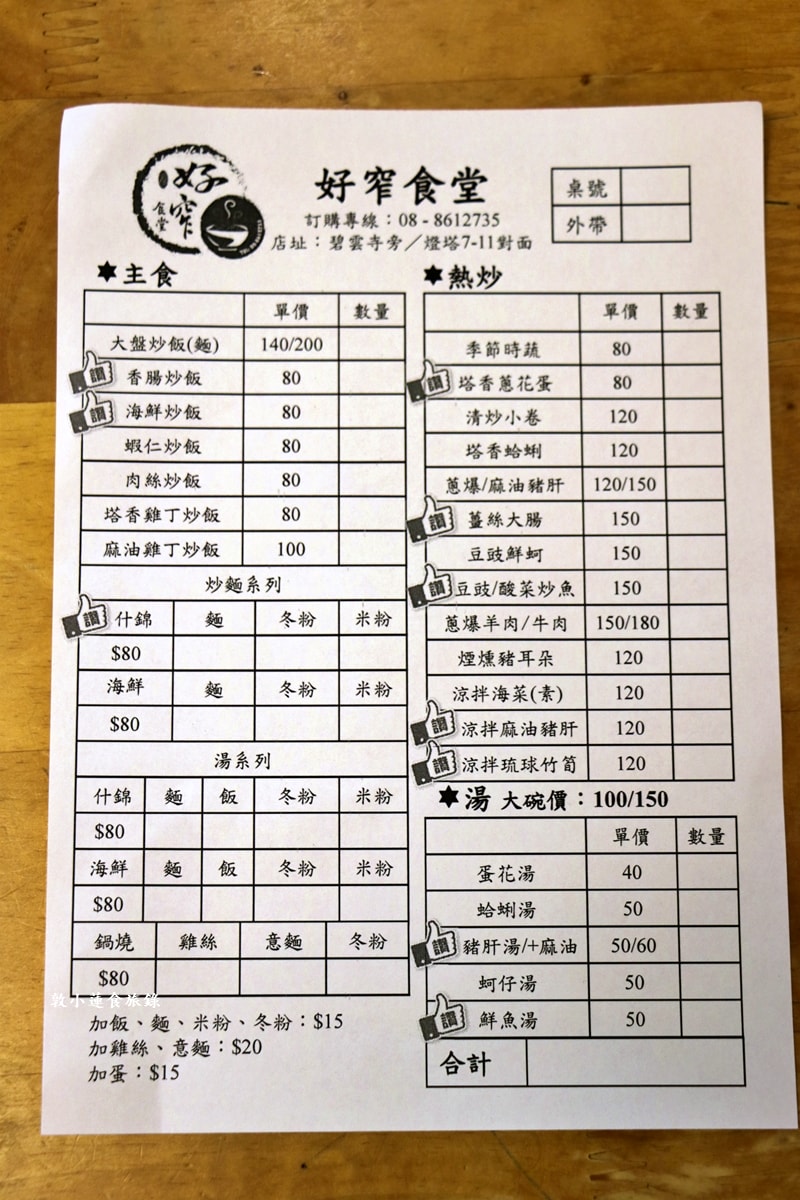 好窄食堂
好窄食堂
訂購專線：08 - 8612735
店址：碧雲寺旁／燈塔7-11對面
桌號
外帶
✶主食
單價 數量
大盤炒飯(麵) 140/200
讚 香腸炒飯 80
讚 海鮮炒飯 80
蝦仁炒飯 80
肉絲炒飯 80
塔香雞丁炒飯 80
麻油雞丁炒飯 100
炒麵系列
讚 什錦 麵 冬粉 米粉
$80
海鮮 麵 冬粉 米粉
$80
湯系列
什錦 麵 飯 冬粉 米粉
$80
海鮮 麵 飯 冬粉 米粉
$80
鍋燒 雞絲 意麵 冬粉
$80
敦小蓮食旅錄
加飯、麵、米粉、冬粉：$15
加雞絲、意麵：$20
加蛋：$15
✶熱炒
單價 數量
季節時蔬 80
讚 塔香蔥花蛋 80
清炒小卷 120
塔香蛤蜊 120
蔥爆/麻油豬肝 120/150
讚 薑絲大腸 150
豆豉鮮蚵 150
讚 豆豉/酸菜炒魚 150
蔥爆羊肉/牛肉 150/180
煙燻豬耳朵 120
涼拌海菜(素) 120
讚 涼拌麻油豬肝 120
讚 涼拌琉球竹筍 120
✶湯 大碗價：100/150
單價 數量
蛋花湯 40
蛤蜊湯 50
讚 豬肝湯/+麻油 50/60
蚵仔湯 50
讚 鮮魚湯 50
合計